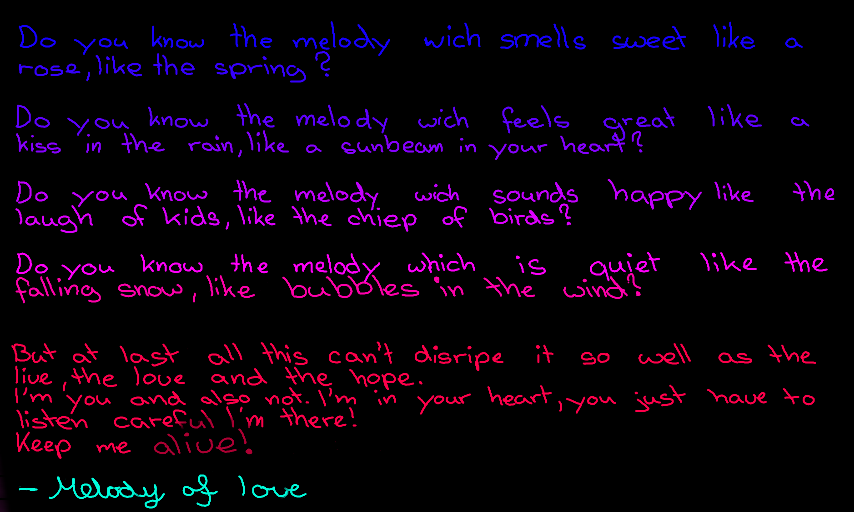 Do you know the melody wich smells sweet like a
rose, like the spring?
Do you know the melody wich feels great like a
kiss in the rain, like a sunbeam in your heart?
Do you know the melody wich sounds happy like the
laugh of kids, like the chiep of birds?
Do you know the melody which is quiet like the
falling snow, like bubbles in the wind?
But at last all this can't disripe it so well as the
live, the love and the hope.
I'm you and also not. I'm in your heart, you just have to
listen careful I'm there!
Keep me alive!
- Melody of love